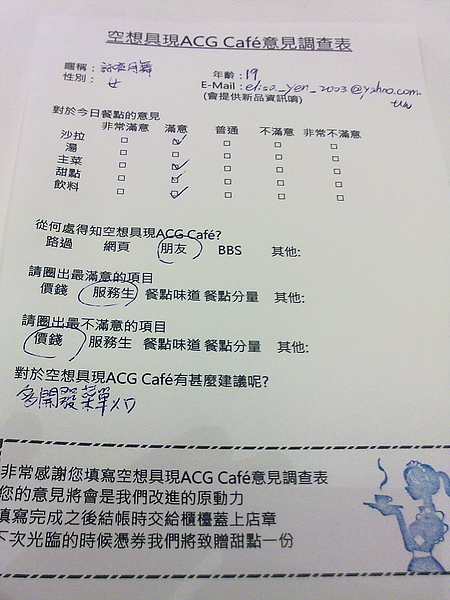 空想具現ACG Café意見調查表
暱稱：
年齡：19
性別： 女
E-Mail：elisa_yen_2003@yahoo.com.tw
(會提供新品資訊唷)
對於今日餐點的意見
非常滿意 滿意 普通 不滿意 非常不滿意
沙拉 □ ☑ □ □ □
湯 □ □ □ □ □
主菜 □ ☑ □ □ □
甜點 □ ☑ □ □ □
飲料 □ ☑ □ □ □
從何處得知空想具現ACG Café?
路過 網頁 朋友 BBS 其他:
請圈出最滿意的項目
價錢 服務生 餐點味道 餐點分量 其他:
請圈出最不滿意的項目
價錢 服務生 餐點味道 餐點分量 其他:
對於空想具現ACG Café有甚麼建議呢?
多開發菜單XD
非常感謝您填寫空想具現ACG Café意見調查表
您的意見將會是我們改進的原動力
填寫完成之後結帳時交給櫃檯蓋上店章
下次光臨的時候憑券我們將致贈甜點一份